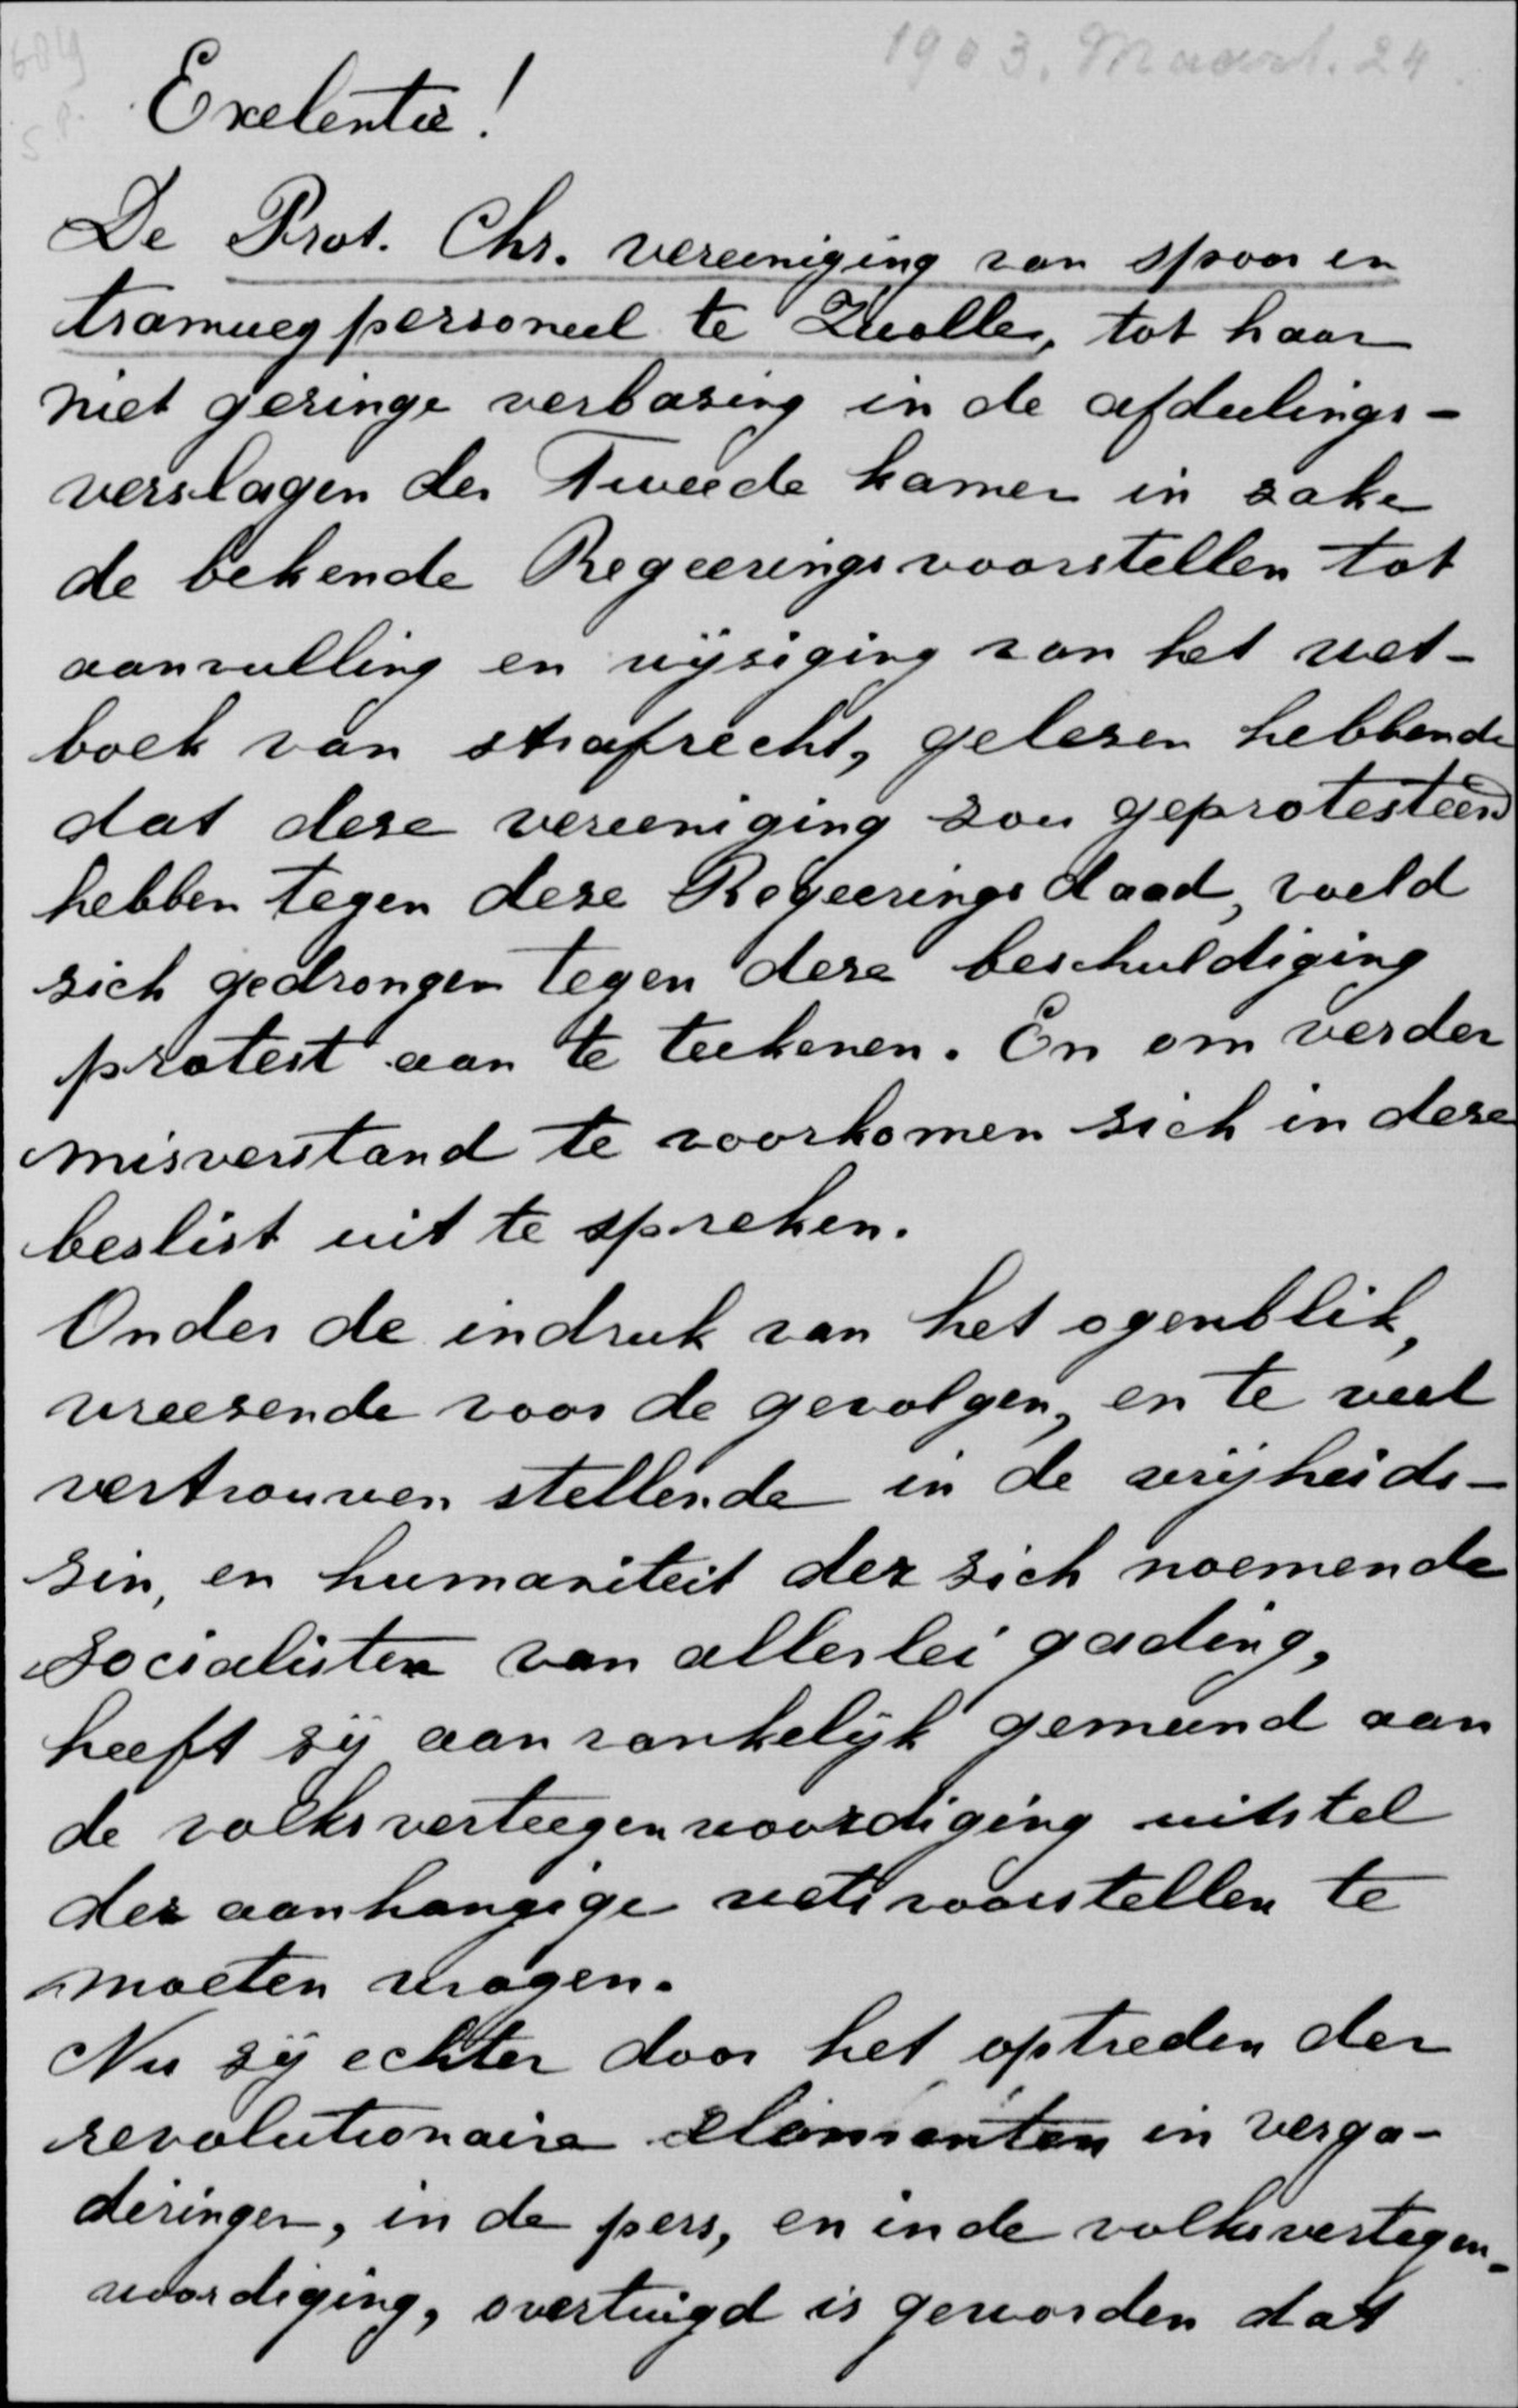 1903. Maart. 24
Exelentie!
De Prot. Chr. vereeniging van spoor en
tramwegpersoneel te Zwolle, tot haar
niet geringe verbazing in de afdeelings-
verslagen der Tweede kamer in zake
de bekende Regeeringsvoorstellen tot
aanvulling en wijziging van het wet-
boek van strafrecht, gelezen hebbende
dat deze vereeniging zou geprotesteerd
hebben tegen deze Regeeringsdaad, voeld
zich gedrongen tegen deze beschuldiging
protest aan te teekenen. En om verder
misverstand te voorkomen zich in deze
beslist uit te spreken.
Onder de indruk van het ogenblik,
vreezende voor de gevolgen, en te veel
vertrouwen stellende in de vrijheids-
zin, en humaniteit der zich noemende
socialisten van allerlei gading,
heeft zij aanvankelijk gemeend aan
de volksverteegenwoordiging uitstel
der aanhangige wetsvoorstellen te
moeten vragen.
Nu zij echter door het optreden der
revolutionaire elementen in verga-
deringen, in de pers, en in de volksvertegen-
woordiging, overtuigd is geworden dat